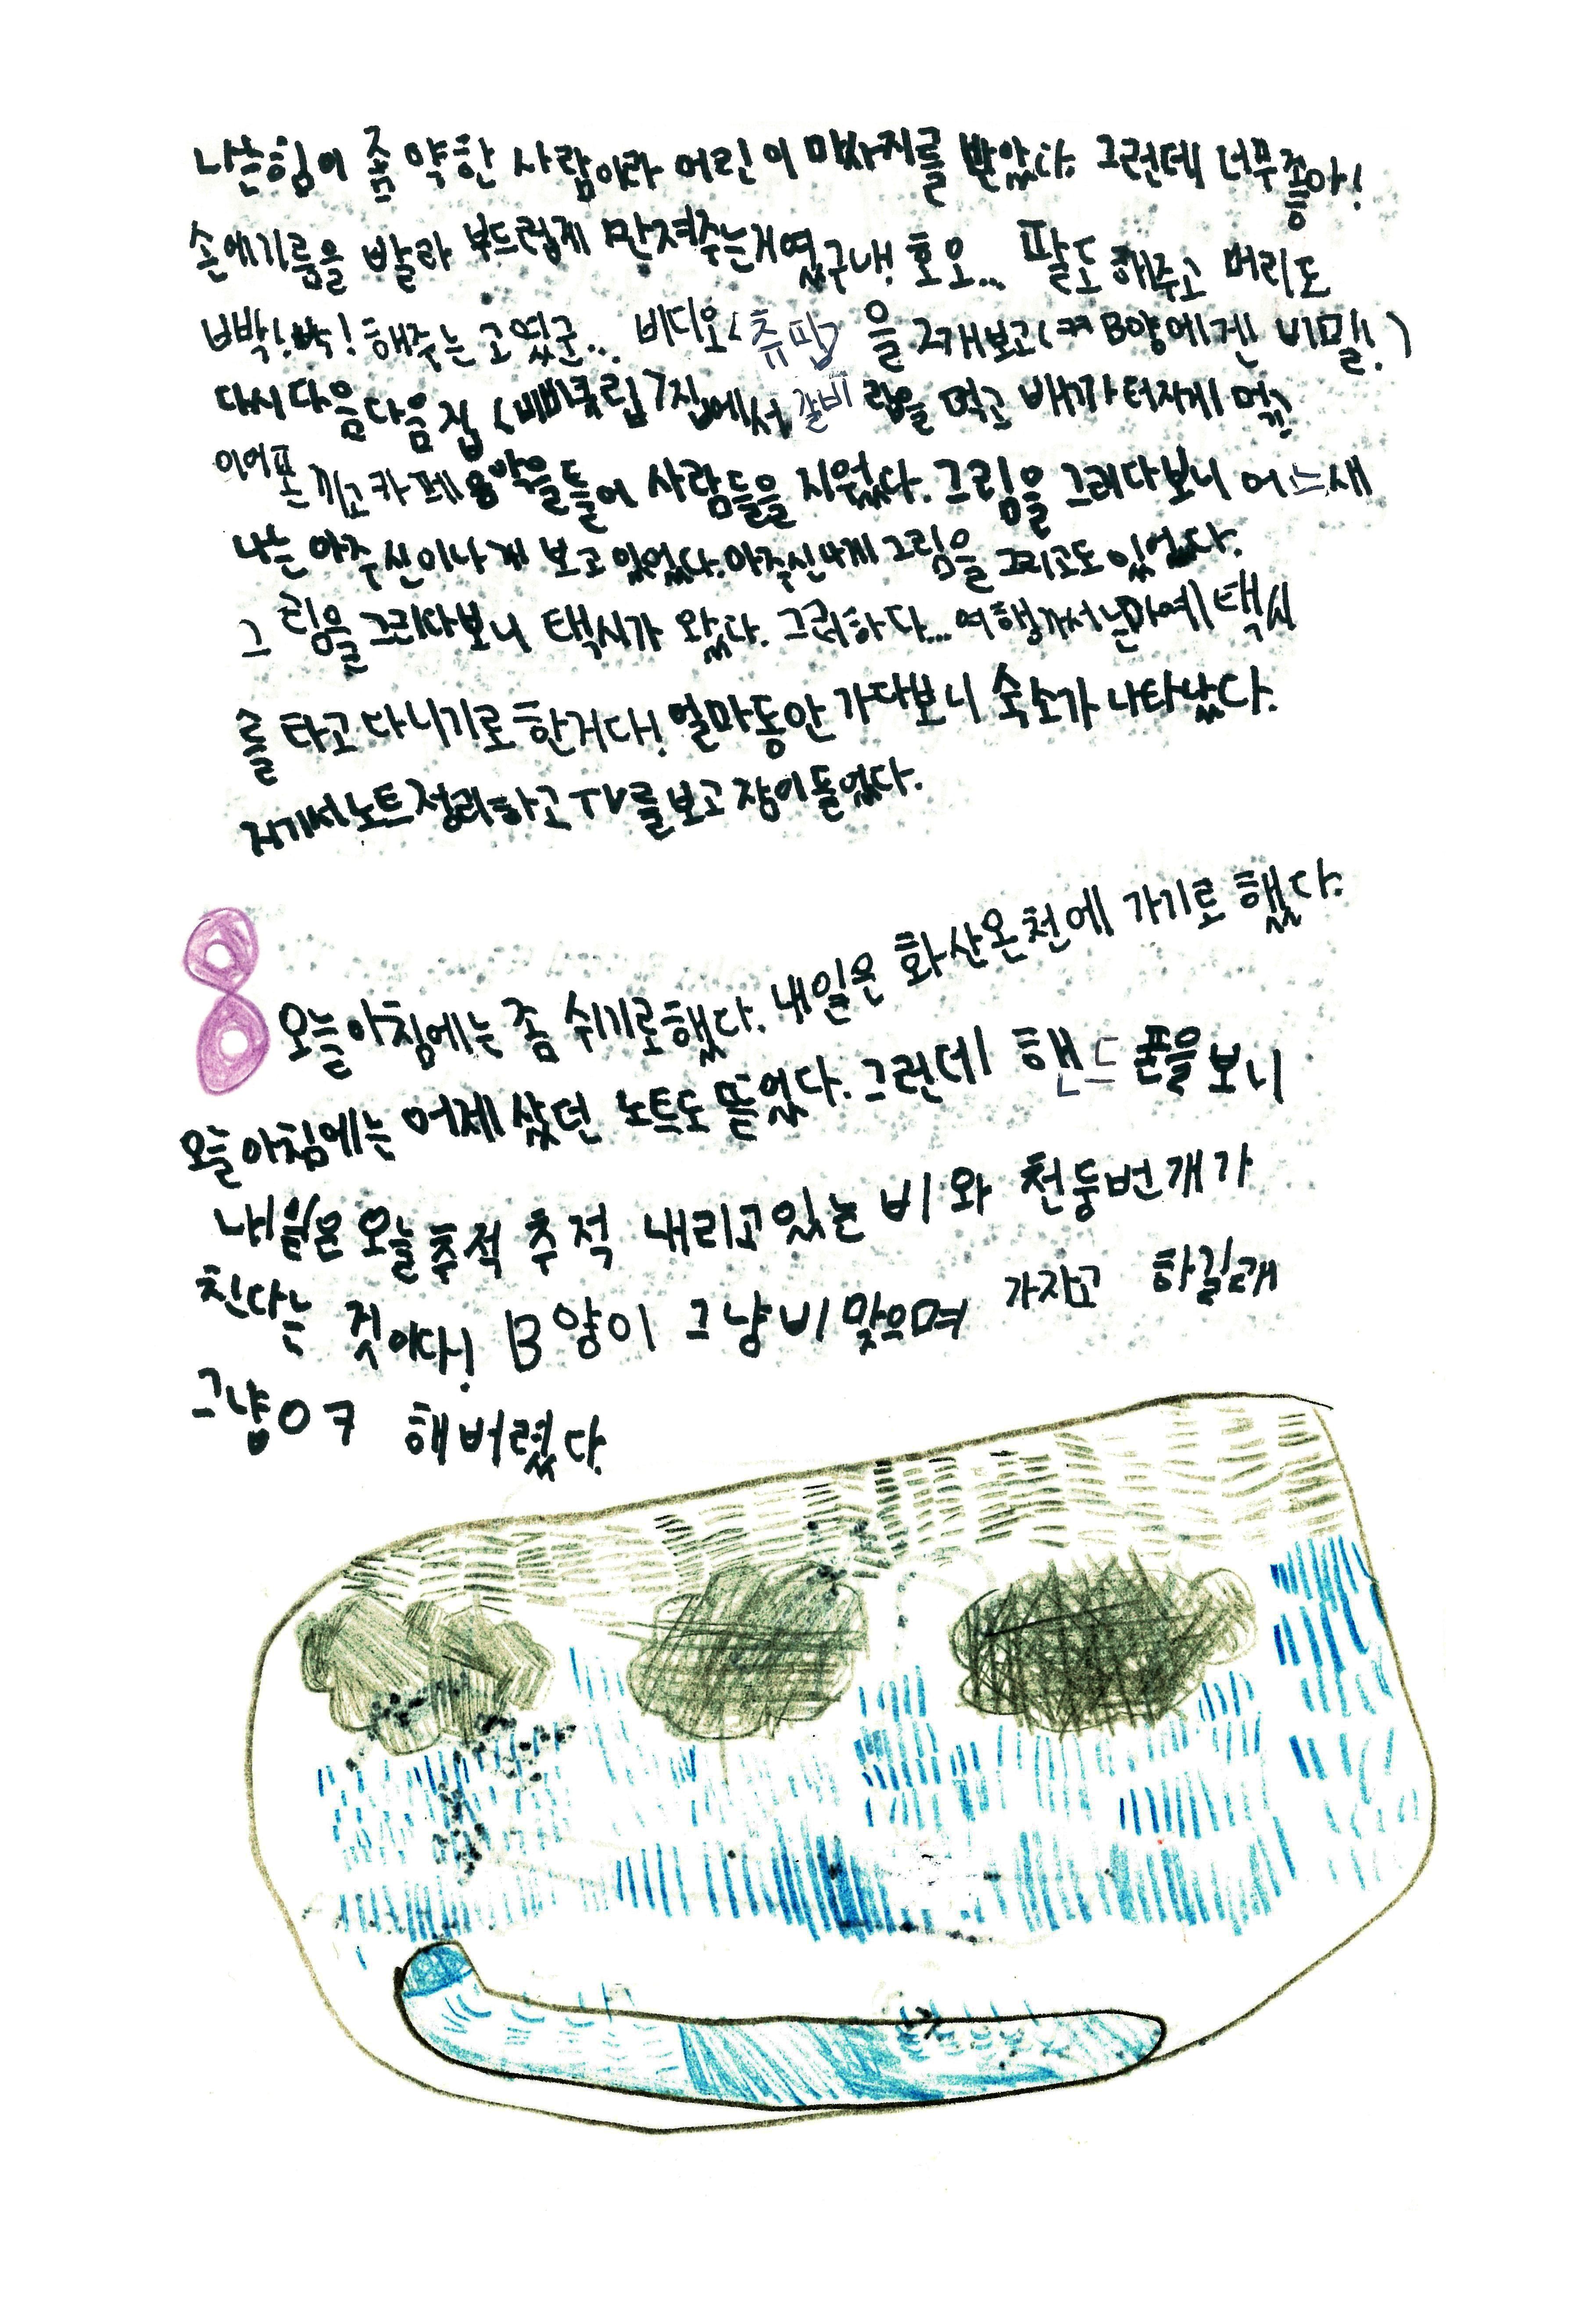 나는 힘이 좀 약한 사람이라 어린이 마사지를 받았다. 그런데 너무 좋아!
손에 기름을 발라 부드럽게 만져주는 거였구내! 호오... 팔도 해주고 머리도
빡!빡! 해주는 고였군... 비디오<츄팝>을 2개 보고(ㅋㅋ B양에겐 비밀!)
다시 다음다음 집 에서 갈비 랍을 먹고 배가 터지게 먹고
이어폰 끼고 카페 음악을 들어 사람들을 지웠다. 그림을 그리다보니 어느새
나는 아주 신이나게 보고 있었다. 아주 신나게 그림을 그리고도 있었다.
그림을 그리다보니 택시가 왔다. 그러하다... 여행가서는 택시
를 타고 다니기로 한거다! 얼마동안 가다보니 숙소가 나타났다.
거기서 노트정리하고 TV를 보고 잠이 들었다.
8 오늘 아침에는 좀 쉬기로 했다. 내일은 화산온천에 가기로 했다.
오늘 아침에는 어제 샀던 노트도 뜯었다. 그런데 핸드폰을 보니
내일은 오늘 추적 추적 내리고 있는 비와 천둥번개가
친다는 것이다! B양이 그냥 비 맞으며 가자고 하길래
그냥 OK 해버렸다.